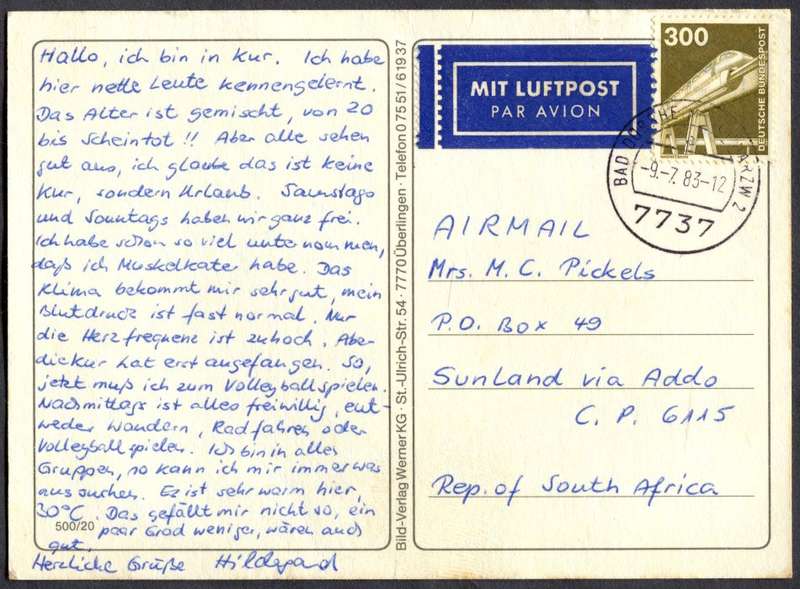 Hallo, ich bin in Kur. Ich habe
hier nette Leute kennengelernt.
Das Alter ist gemischt, von 20
bis Scheintot!! Aber alle sehen
gut aus, ich glaube das ist keine
Kur, sondern Urlaub. Samstags
und Sonntags haben wir ganz frei.
Ich habe schon so viel unternommen,
daß ich Muskelkater habe. Das
Klima bekommt mir sehr gut, mein
Blutdruck ist fast normal. Nur
die Herzfrequenz ist zu hoch. Aber
die Kur hat erst angefangen. So,
jetzt muß ich zum Volleyballspielen.
Nachmittags ist alles freiwillig, ent-
weder Wandern, Radfahren oder
Volleyballspielen. Ich bin in allen
Gruppen, so kann ich mir immer was
aussuchen. Es ist sehr warm hier,
30°C. Das gefällt mir nicht so, ein
paar Grad weniger, wären auch
gut.
Herzliche Grüße Hildegard
500/20
Bild-Verlag Werner KG · St.-Ulrich-Str. 54 · 7770 Überlingen · Telefon 07551/61937
MIT LUFTPOST
PAR AVION
300
DEUTSCHE BUNDESPOST
BAD
-9.-7.83-12
7737
AIRMAIL
Mrs. M. C. Pickels
P.O. Box 49
Sunland via Addo
C. P. 6115
Rep. of South Africa